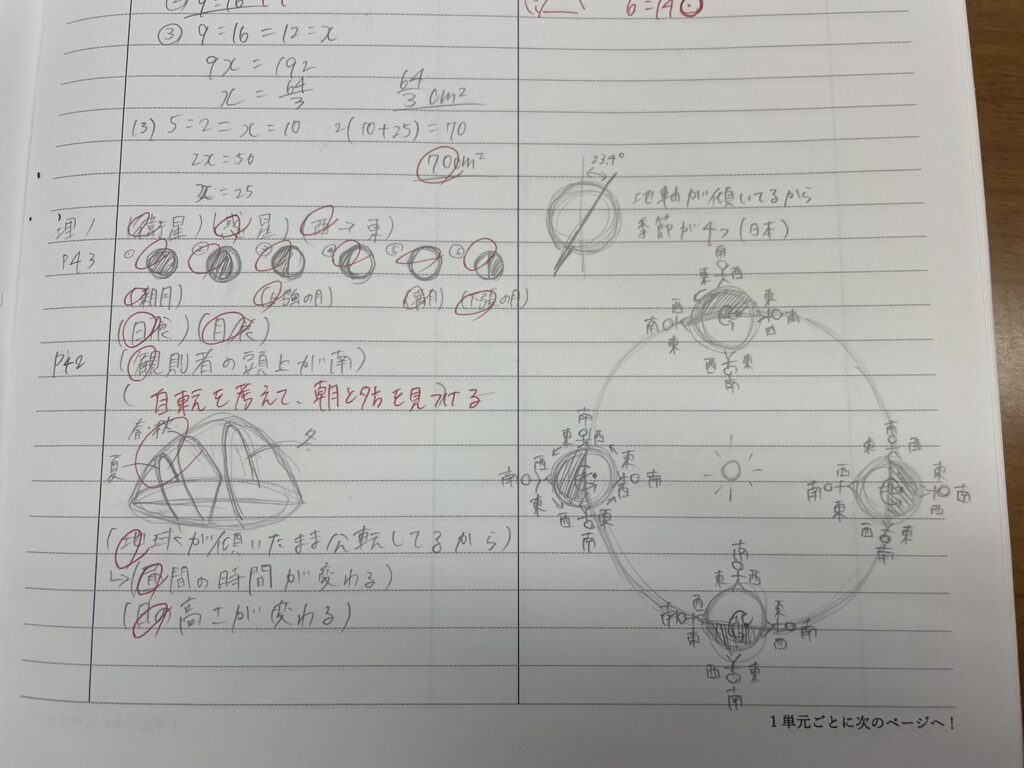 ③ 9=16=12=x
9x=192
x=64/3
64/3 cm²
(3) 5=2=x=10 2(10+25)=70
2x=50
70cm²
x=25
理1 (衛星)(惑星)(西→東)
P43 ① ② ③ ④ ⑤ ⑥
(新月) (上弦の月) (満月)(下弦の月)
(日食)(月食)
P42 (観測者の頭上が南)
(自転を考えて、朝と夕を見つける
春・秋
夏
冬
(地球が傾いたまま公転してるから)
↳(昼間の時間が変わる)
(日の高さが変わる)
6=14
23.4°
地軸が傾いてるから
季節が4つ(日本)
南
東 西
西 東
南 南
東 西
西 東
南
南
東 西
西 東
南 南
東 西
西 東
南
南
東 西
西 東
南 南
東 西
西 東
南
南
東 西
西 東
南 南
東 西
西 東
南
1単元ごとに次のページへ!